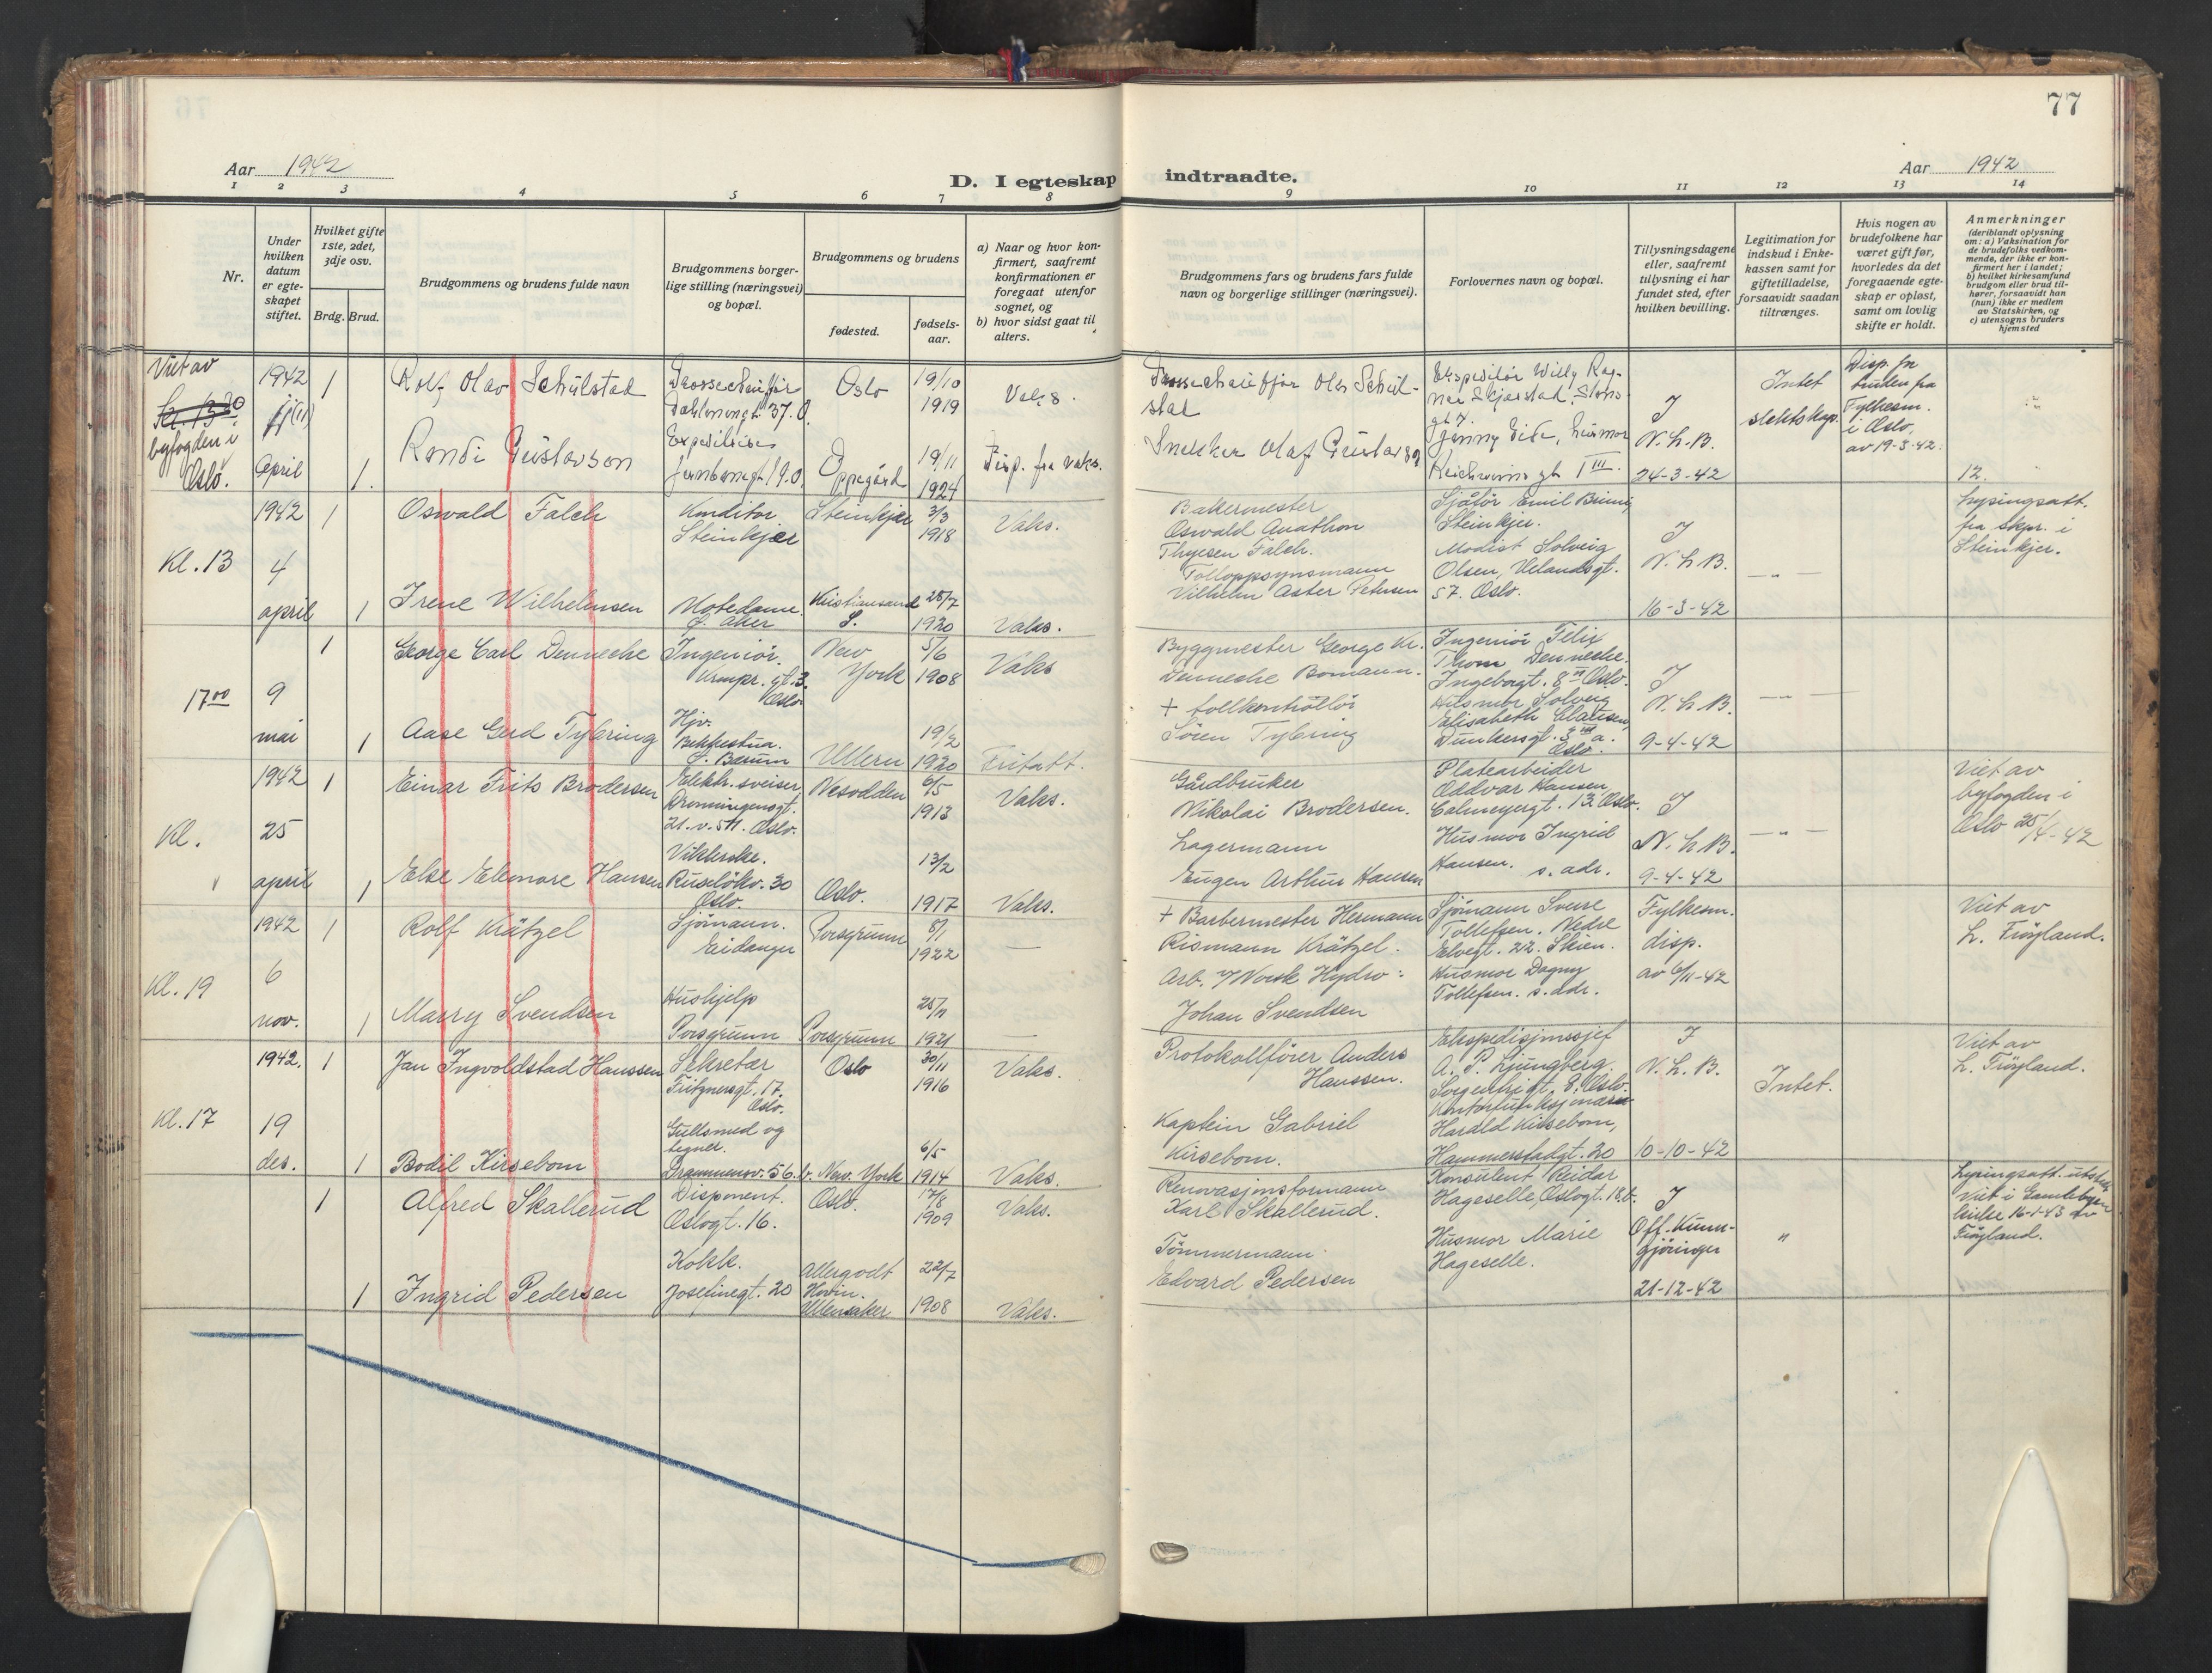 77
Aar 1942
D. I egteskap indtraadte.
Aar 1942
1 2 3 4 5 6 7 8 9 10 11 12 13 14
Nr.
Under hvilken datum er egteskapet stiftet.
Hvilket gifte 1ste, 2det, 3dje osv.
Brdg. Brud.
Brudgommens og brudens fulde navn
Brudgommens borgerlige stilling (næringsvei) og bopæl.
Brudgommens og brudens
fødested.
fødsels-aar.
a) Naar og hvor konfirmert, saafremt konfirmationen er foregaat utenfor sognet, og
b) hvor sidst gaat til alters.
Brudgommens fars og brudens fars fulde navn og borgerlige stillinger (næringsvei).
Forlovernes navn og bopæl.
Tillysningsdagene eller, saafremt tillysning ei har fundet sted, efter hvilken bevilling.
Legitimation for indskud i Enkekassen samt for giftetilladelse, forsaavidt saadan tiltrænges.
Hvis nogen av brudefolkene har været gift før, hvorledes da det foregaaende egteskap er opløst, samt om lovlig skifte er holdt.
Anmerkninger
(deriblandt oplysning om: a) Vaksination for de brudefolks vedkommende, der ikke er konfirmert her i landet;
b) hvilket kirkesamfund brudgom eller brud tilhører, forsaavidt han (hun) ikke er medlem av Statskirken, og
c) utensogns bruders hjemsted
Viet av
byfogden i
Oslo.
1942
April
1
Rolf Olav Schulstad
Drossechauffør
Dahlmnngt. 37. O.
Oslo
19/10
1919
Vaks.
Drossechauffør Olav Schul-
stad
Ekspeditør Willy Rag-
nar Skjørstad, Slots-
gt 7.
J
N. L. B.
24-3-42
Intet
slektskap.
Disp. for
bruden fra
Fylkesm.
i Oslo,
av 19-3-42.
1.
Randi Gustavson
Expeditrise
Jernbanegt. 19. O.
Oppegård
19/11
1924
Disp. fra vaks.
Snekker Olaf Gustavson
Jenny Eide, husmor
12.
1942
Kl. 13
4
april
1
Oswald Falch
Konditor
Steinkjer
Steinkjer
3/3
1918
Vaks.
Bakermester
Oswald Anathon
Thyesen Falch.
Sjåfør Emil Bruniq
Steinkjer.
J
N. L B.
16-3-42
Lysingsatt.
fra Skpr. i
Steinkjer.
1
Irene Wilhelmsen
Motedame
Ø. Aker
Kristiansand
S.
28/7
1920
Vaks.
Tolloppsynsmann
Vilhelm Aster Petersen
Modist Solveig
Olsen, Velandsgt.
57. Oslo.
1700
9
mai
1
George Carl Denneche
Ingeniør.
Kronpr. gt. 3.
Oslo
New
York
5/6
1908
Vaks
Byggmester George Kr.
Denneche Bomann.
Ingeniør Felix
Thom Denneche.
Ingeborgt. 8 II Oslo.
J
N. L B.
9-4-42
1
Aase Gerd Tybring
Hjv.
Bekkestua.
Ø. Bærum
Ullern
19/2
1920
Fritatt.
+ tollkontrollør
Sören Tybring
Husmor Solveig
Elisabeth Clausen,
Dunkersgt. 3 III a.
Oslo.
1942
Kl.
25
april
1
Einar Frits Brodersen
Elektr. sveiser
Dronningensgt.
21. v. 511. Oslo.
Nesodden
6/5
1913
Vaks.
Gårdbruker
Nikolai Brodersen.
Platearbeider
Oddvar Hansen,
Calmeyergt. 13. Oslo.
J
N. L B.
9-4-42
Viet av
byfogden i
Oslo 25/4-42
1
Else Elenore Hansen
Viklerske.
Ruseløkv. 30
Oslo.
Oslo.
13/2
1917
Vaks.
Lagermann
Eugen Arthur Hansen
Husmor Ingrid
Hansen. s. adr.
1942
Kl. 19
6
nov.
1
Rolf Krätzel
Sjømann.
Eidanger
Porsgrunn
8/1
1922
+ Barbermester Hermann
Rismann Krätzel.
Sjømann Sverre
Tollefsen. Nedre
Elvegt. 22. Skien.
Fylkesm.
disp.
av 6/11-42
Viet av
L. Frøyland.
1
Marry Svendsen
Hushjelp
Porsgrunn
Porsgrunn
25/11
1921
Arb. v/Norsk Hydro:
Johan Svendsen
Husmor Dagny
Tollefsen. s. adr.
1942.
Kl. 17
19
des.
1
Jan Ingvoldstad Hanssen
Sekretær
Fritznersgt. 17.
Oslo.
Oslo
30/11
1916
Vaks.
Protokollfører Anders
Hanssen.
Ekspedisjonssjef
A. P. Ljungberg.
Sorgenfrigt. 8. Oslo.
J
N. L. B.
10-10-42
Intet.
Viet av
L. Frøyland.
1
Bodil Kirsebom
Gullsmed og
tegner.
Drammensv. 56. b.
New. York
6/5
1914
Vaks.
Kaptein Gabriel
Kirsebom.
Kontorfunksjonær
Harald Kirsebom,
Hammerstadgt. 20
1
Alfred Skallerud
Disponent.
Oslogt. 16.
Oslo.
17/8
1909
Vaks.
Renovasjonsformann
Karl Skallerud.
Konsulent Reidar
Hageselle, Oslogt. 18. b.
J
Off. Kunn-
gjøringer
21-12-42
"
Lysingsatt. utstedt
Viet i Gamlebyen
kirke 16-1-43 av
Frøyland.
1
Ingrid Pedersen
Kokk.
Josefinegt. 20
Allergodt
Hovin.
Ullensaker
22/7
1908
Vaks.
Tömmermann
Edvard Pedersen
Husmor Marie
Hageselle.